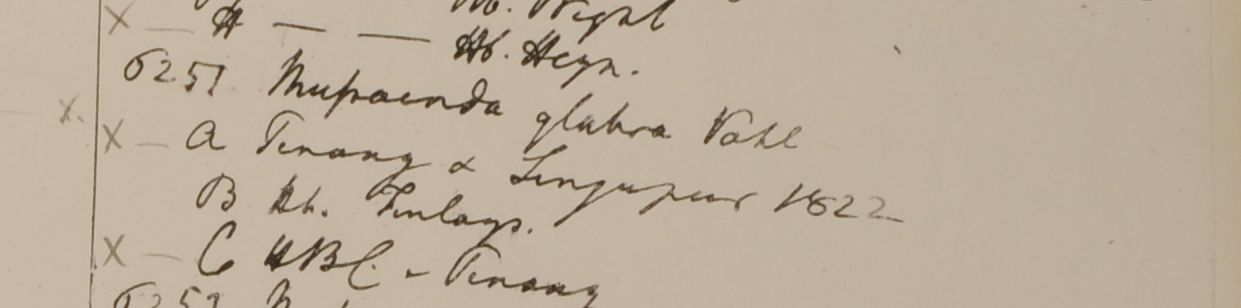 X — H — — Hb. Wight
Hb. Heyn.
6251 Mussaenda glabra Vahl
X.
X — A Penang & Singapur 1822
B Hb. Finlays.
X — C HBC. - Penang
625